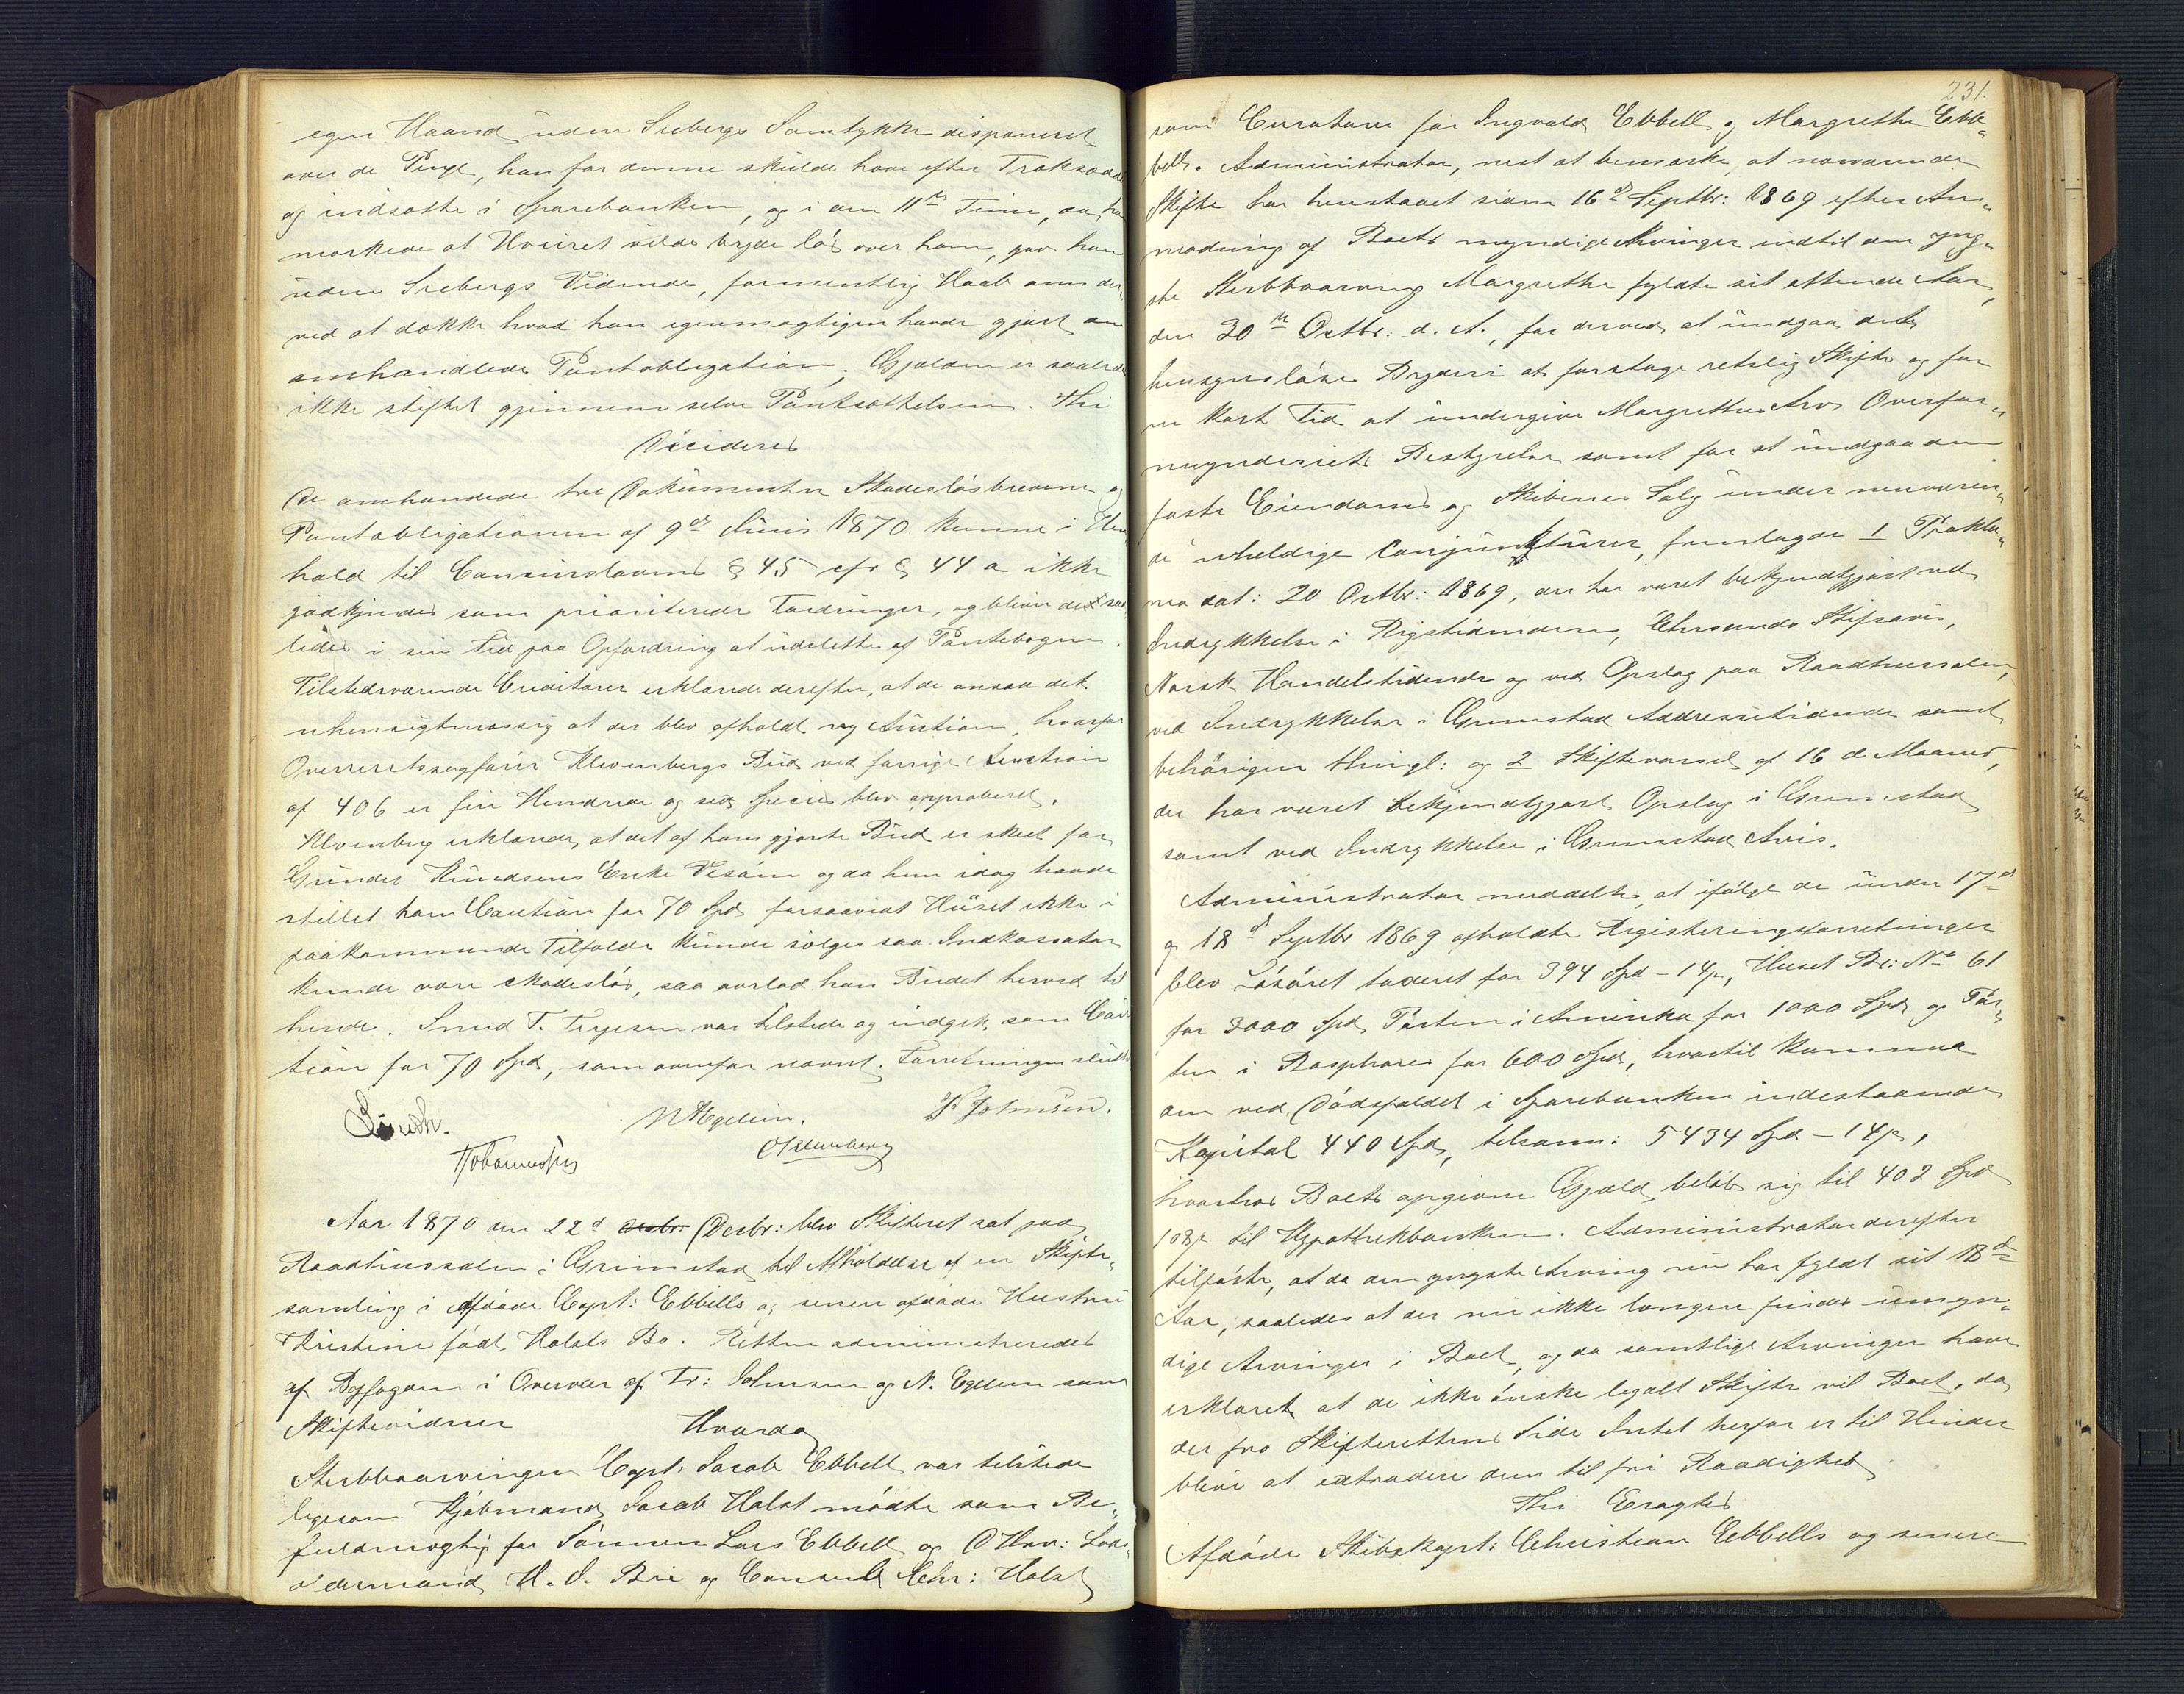 egen Haand uden Siebergs Samtykke disponeret
over de Penge, han for denne skulde hæve efter
og indsætte i Sparebanken, og i den 11te Time, da han
mærkede at Uveiret vilde bryde løs over ham, gav han
uden Siebergs Vidende, formentlig Haab om der¬
ved at dække hvad han egenmægtigen havde gjort den
omhandlede Pantobligation. Gjælden er saaledes
ikke stiftet gjennem selve Pantsættelsen. Thi
Decideres
De omhandlede tre Dokumenter Skadesløsbrevene og
Pantobligationen af 9de Juni 1870 kunne i Hen
hold til Concursloven § 45 cfr § 44 a ikke
godkjendes som prioriterede Fordringer, og bliver de saa¬
ledes i sin Tid paa Opfordring at udslette af Pantebogen.
Tilstedeværende Creditorer erklærede derefter, at de ansaa det
uhensigtmæssig at der blev afholdt ny Auction, hvorfor
Overretssagfører Ulvenbergs Bud ved forrige Auction
af 406 er fire Hundrede og sex Species blev approberet.
Ulvenberg erklærede, at det af ham gjorte Bud er skeet for
Gunder Knudsens Enke Vesøen og da hun idag havde
stillet ham Caution for 70 Spd forsaavidt Huset ikke i
paakommende Tilfælde kunde sælges saa Indkassator
kunde være skadesløs, saa overlod han Budet herved til
hende. Smed T. Terjesen var tilstede og indgik som Cau
tion for 70 Spd, som ovenfor nævnt. Forretningen sluttet
N Egelien. F. Johnsen.
Ulvenberg
Aar 1870 den 22d Decbr: blev Skifteret sat paa
Raadhussalen i Grimstad til Afholdelse af en Skifte¬
samling i afdøde Capt: Ebbells og senere afdøde Hustru
Kristine født Holsts Bo. Retten administreredes
af Byfogden i Overvær af Fr: Johnsen og N. Egelien som
Skiftevidner Hvorda
Sterbboarvingen Capt: Jacob Ebbell var tilstede
ligesom Kjøbmand Jacob Holst mødte som Be¬
fuldmægtig for Sønnen Lars Ebbell og DHrr: Lods¬
oldermand H. J. Brie og Consul Chr: Holst
231.
som Curatorer for Ingvald Ebbell og Margrethe Ebb¬
bell. Administrator, vest at bemærke, at nærværende
Skifte har henstaaet siden 16de Septbr: 1869 efter An¬
modning af Boets myndige Arvinger indtil den yng¬
ste Sterbboarving Margrethe fyldte sit attende Aar,
den 30te Octbr: d. A., for derved at undgaa det
hensynsløse Bryderi at foretage retslig Skifte og for
en kort Tid at undergive Margrethes Arv Overfor¬
mynderiets Bestyrelse samt for at undgaa den
faste Eiendoms og Skibenes Salg under nuværen¬
de uheldige Conjunkturer, fremlagde 1 Prokla¬
ma dat: 20 Octbr: 1869, der har været bekjendtgjort ved
Indrykkelse i Rigstidenden, Chrsands Stiftsavis,
Norsk Handelstidende og ved Opslag paa Raadhussalen,
ved Indrykkelse i Grimstad Addressetidende samt
behørigen thingl: og 2 Skiftevarsel af 16 d Maaned,
der har været bekjendtgjort Opslag i Grimstad
samt ved Indrykkelse i Grimstad Avis.
Administrator meddelte, at ifølge de under 17de
og 18d Septbr 1869 afholdte Registeringsforretninger
blev Løsøret taxeret for 394 Spd – 14β, Huset Br: No 61
for 3000 Spd, Parten i America for 1000 Spd og Par¬
ten i Bosphorus for 600 Spd, hvortil kommer
den ved Dødsfaldet i Sparebanken indestaaende
Kapital 440 Spd, tilsam: 5434 Spd – 14β,
hvorhos Boets opgivne Gjæld beløb sig til 402 Spd
108β til Hypothekbanken. Administrator derefter
tilførte, at da den yngste Arving nu har fyldt sit 18de
Aar, saaledes at der nu ikke længere findes umyn¬
dige Arvinger i Boet, og da samtlige Arvinger have
erklæret at de ikke ønske legalt Skifte vil Boet, da
der fra Skifterettens Side Intet herfor er til Hinder
blive at extradere dem til fri Raadighed.
Thi Eragtes
Afdøde Skibskapt: Christian Ebbells og senere